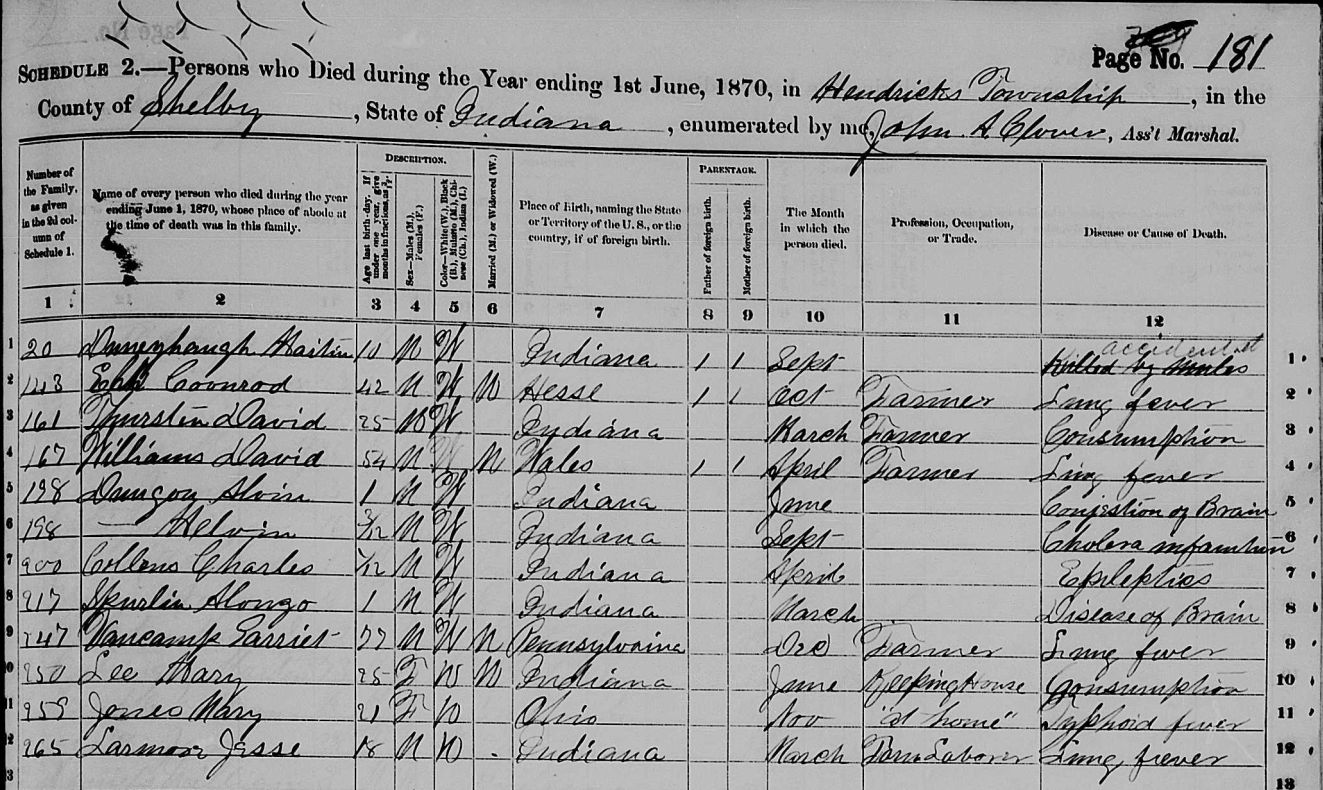 Page No. 181
SCHEDULE 2.—Persons who Died during the Year ending 1st June, 1870, in Hendricks Township, in the
County of Shelby, State of Indiana, enumerated by me, John A Clover, Ass't Marshal.
Number of the Family, as given in the 2d column of Schedule 1.
Name of every person who died during the year ending June 1, 1870, whose place of abode at the time of death was in this family.
DESCRIPTION.
Age last birth-day. If under one year, give months in fractions, as
Sex—Males (M.), Females (F.)
Color—White (W.), Black (B.), Mulatto (M.), Chinese (Ch.), Indian (I.)
Married (M.) or Widowed (W.)
Place of Birth, naming the State or Territory of the U. S., or the country, if of foreign birth.
PARENTAGE.
Father of foreign birth.
Mother of foreign birth.
The Month in which the person died.
Profession, Occupation, or Trade.
Disease or Cause of Death.
1 2 3 4 5 6 7 8 9 10 11 12
1 20 10 M W Indiana 1 1 Sept Killed by Mules accident 1
2 143 Coonrod 42 M W Hesse 1 1 Oct Farmer Lung fever 2
3 161 Thurstin David 25 M W Indiana March Farmer Consumption 3
4 167 Williams David 54 M W M Wales 1 1 April Farmer Lung fever 4
5 198 Alvin 1 M W Indiana June Conjestion of Brain 5
6 198 — Helvin 3/12 M W Indiana Sept Cholera infantum 6
7 200 Collens Charles 1/12 M W Indiana April Epileptics 7
8 217 Spurlin Alongo 1 M W Indiana March Disease of Brain 8
9 247 Vancamp Garriet 77 M W M Pennsylvaina Dec Farmer Lung fever 9
10 250 Lee Mary 25 F W M Indiana June Keeping House Consumption 10
11 259 Jones Mary 21 F W Ohio Nov "at home" Typhoid fever 11
12 265 Larmore Jesse 18 M W Indiana March Farm Laborer Lung fever 12
13 13